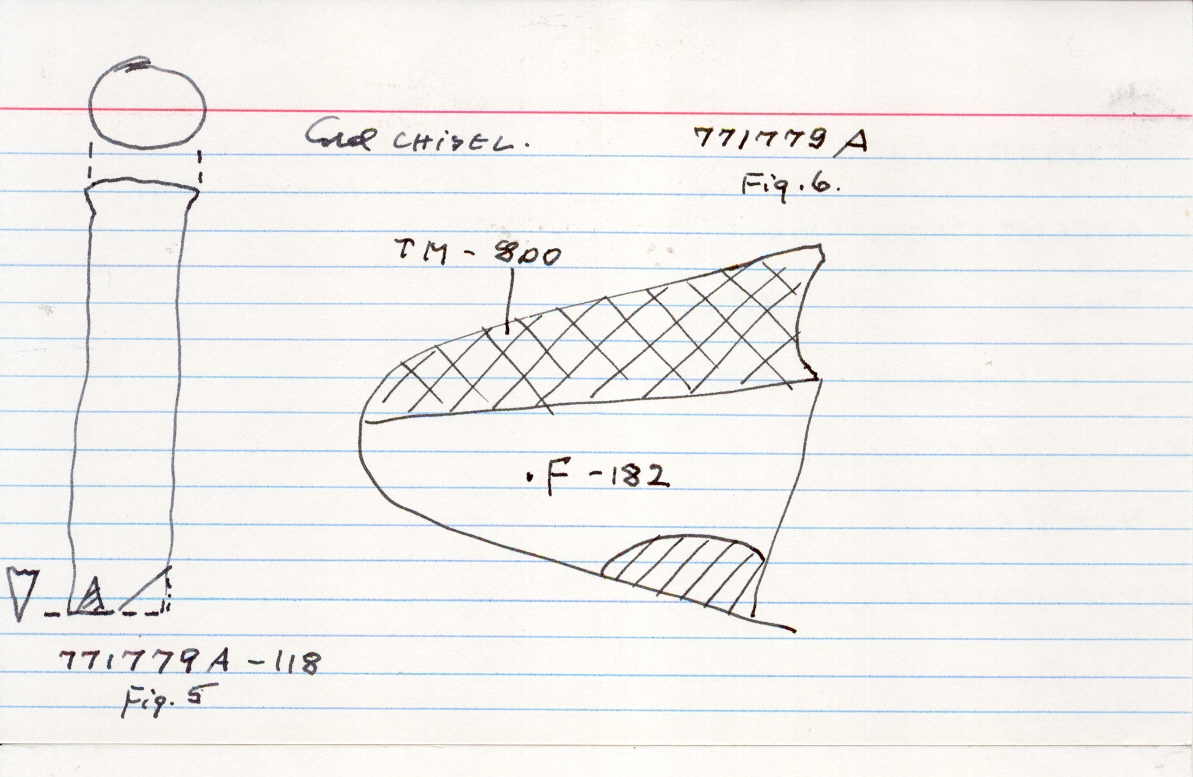 Cold CHISEL.
771779 A
Fig. 6.
TM - 800
. F - 182
771779 A - 118
Fig. 5